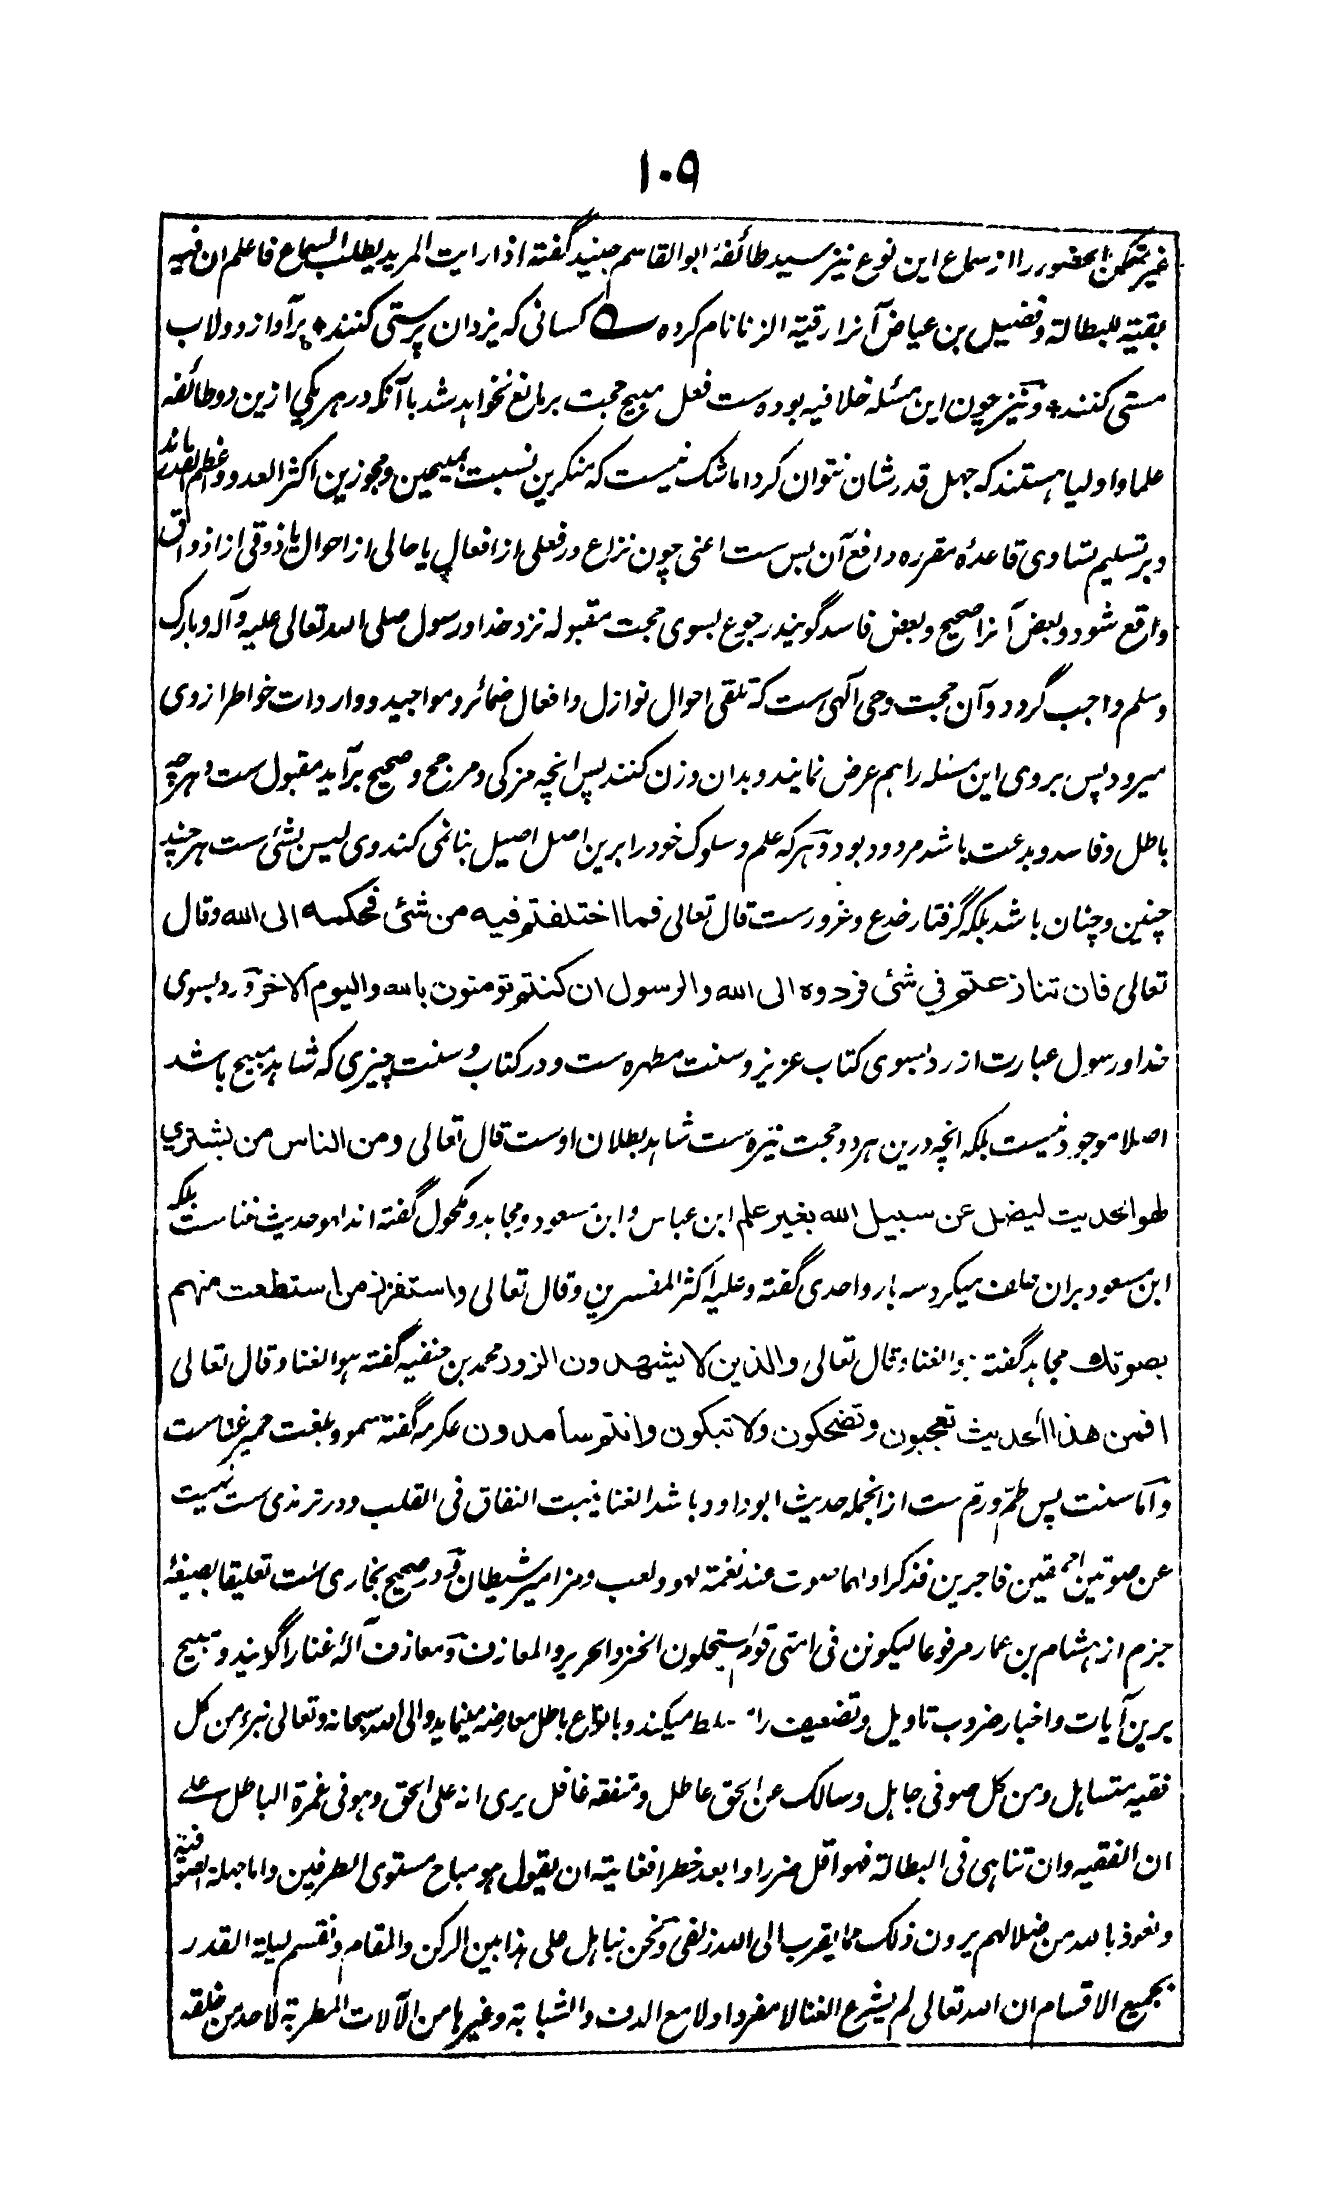 ۱۰۹
غیر متمکن الحضور را از سماع این نوع نیز سید طائفهٔ ابو القاسم جنید گفته اذا رایت المرید یطلب السماع فاعلم ان فیه
بقیة للبطالة و فضیل بن عیاض آنرا رقیة الزنا نام کرده ست کسانی که یزدان پرستی کنند * بر آواز دولاب
مستی کنند * و نیز چون این مسئله خلافیه بوده ست فعل مبیح حجت بر مانع نخواهد شد با آنکه در هر یکی ازین دو طائفه
علما و اولیا هستند که جهل قدر شان نتوان کرد اما شک نیست که منکرین نسبت بمبیحین و مجوزین اکثر العدد و اعظم القدر ماند
و بر تسلیم تساوی قاعدهٔ مقرره دافع آن بس ست اعنی چون نزاع در فعلی از افعال یا حالی از احوال یا ذوقی از اذواق
واقع شود و بعض آنرا صحیح و بعض فاسد گویند رجوع بسوی حجت مقبوله نزد خدا و رسول صلی الله تعالی علیه و آله و بارک
وسلم واجب گردد و آن حجت وحی الٰهی ست که تلقی احوال نوازل و افعال ضمائر و مواجید و واردات خواطر از وی
میرود پس بر وی این مسئله را هم عرض نمایند و بدان وزن کنند پس انچه مزکی و مرجح و صحیح برآید مقبول ست و هرچه
باطل و فاسد و بدعت باشد مردود بود و هر که علم و سلوک خود را برین اصل اصیل بنا نمی کند وی لیس بشئ ست هر چند
چنین و چنان باشد بلکه گرفتار خدع و غرور ست قال تعالی فما اختلفتم فیه من شئ فحکمه الی الله وقال
تعالی فان تنازعتم فی شئ فردوه الی الله والرسول ان کنتم تومنون بالله والیوم الآخر و رد بسوی
خدا و رسول عبارت از رد بسوی کتاب عزیز و سنت مطهره ست و در کتاب و سنت چیزی که شاهد مبیح باشد
اصلا موجود نیست بلکه انچه درین هر دو حجت نیره ست شاهد بطلان اوست قال تعالی ومن الناس من یشتری
لهو الحدیث لیضل عن سبیل الله بغیر علم ابن عباس و ابن مسعود و مجاهد و مکحول گفته اند لهو حدیث غناست بلکه
ابن مسعود بران حلف میکرد سه بار واحدی گفته وعلیه اکثر المفسرین وقال تعالی واستفزز من استطعت منهم
بصوتک مجاهد گفته هو الغنا وقال تعالی والذین لا یشهدون الزور محمد بن حنفیه گفته هو الغنا وقال تعالی
افمن هذا الحدیث تعجبون وتضحکون ولا تبکون وانتم سامدون عکرمه گفته سمود بلغت حمیر غناست
و اما سنت پس طم و رم ست از انجمله حدیث ابو داود باشد الغنا ینبت النفاق فی القلب و در ترمذی ست نهیت
عن صوتین احمقین فاجرین فذکر اولهما صوت عند نغمة لهو ولعب ومزامیر شیطان و در صحیح بخاری ست تعلیقا بصیغهٔ
جزم از هشام بن عمار مرفوعا لیکونن فی امتی قوم یستحلون الخز والحریر والمعازف و معازف آلهٔ غنا را گویند و مبیح
برین آیات و اخبار ضروب تاویل و تضعیف را میکند و بانواع باطل معارضه مینماید والی الله سبحانه وتعالی نبرء من کل
فقیه متساهل ومن کل صوفی جاهل وسالک عن الحق عاطل ومتفقه غافل یری انه علی الحق وهو فی غمرة الباطل علی
ان الفقیه وان تناهی فی البطالة فهو اقل ضررا وابعد خطرا فغایته ان یقول هو مباح مستوی الطرفین واما جهلة الصوفیة
ونعوذ بالله من ضلالهم یرون ذلک مما یقرب الی الله زلفی ونحن نباهل علی هذا بین الرکن والمقام ونقسم لیلة القدر
بجمیع الاقسام ان الله تعالی لم یشرع الغنا لا مفردا ولا مع الدف والشبابة وغیرها من الآلات المطربة لاحد من خلقه